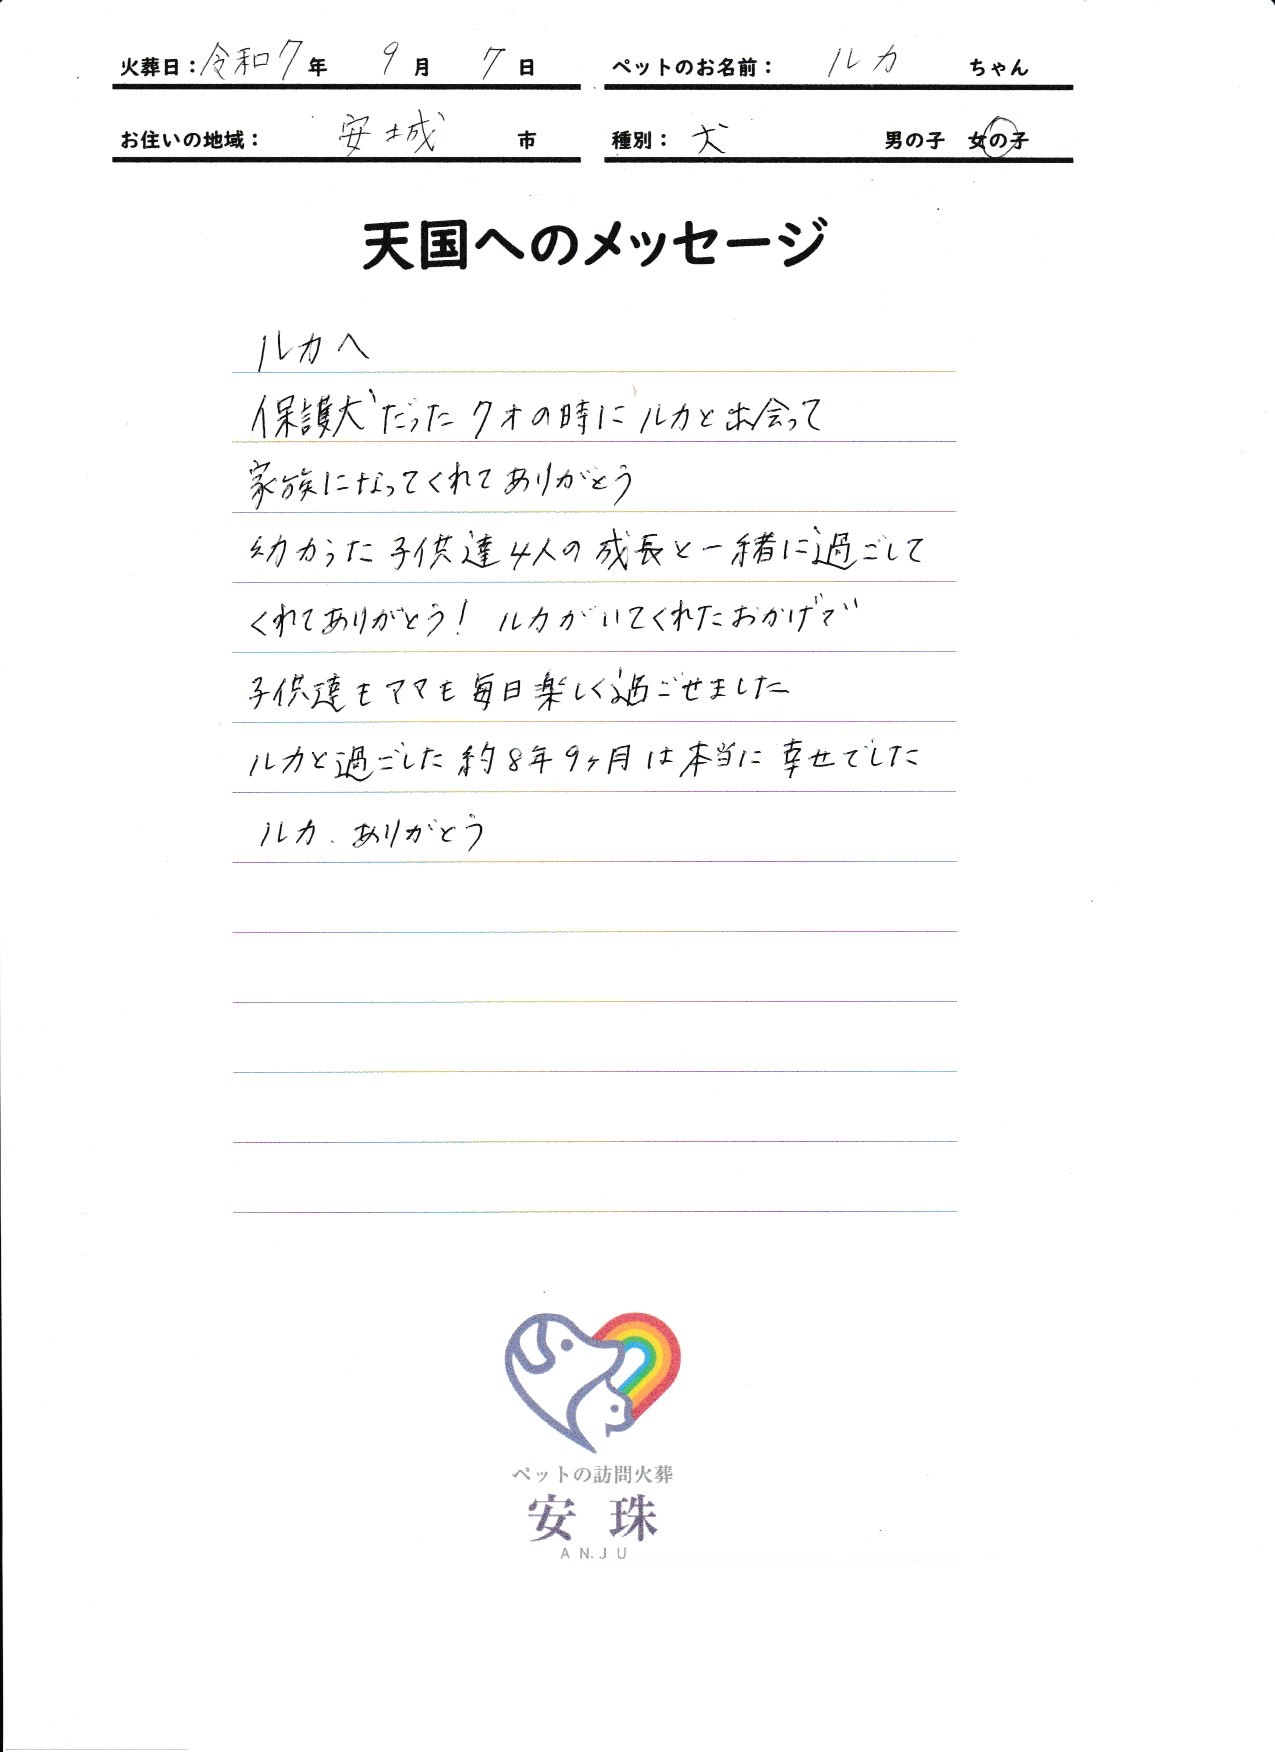 火葬日：令和7年 9月 7日 ペットのお名前： ルカ ちゃん
お住いの地域： 安城 市 種別： 犬 男の子 女の子
天国へのメッセージ
ルカへ
保護犬だった7才の時にルカと出会って
家族になってくれてありがとう
幼かった子供達4人の成長と一緒に過ごして
くれてありがとう！ ルカがいてくれたおかげで
子供達もママも毎日楽しく過ごせました
ルカと過ごした約8年9ヶ月は本当に幸せでした
ルカ、ありがとう
ペットの訪問火葬
安珠
ANJU